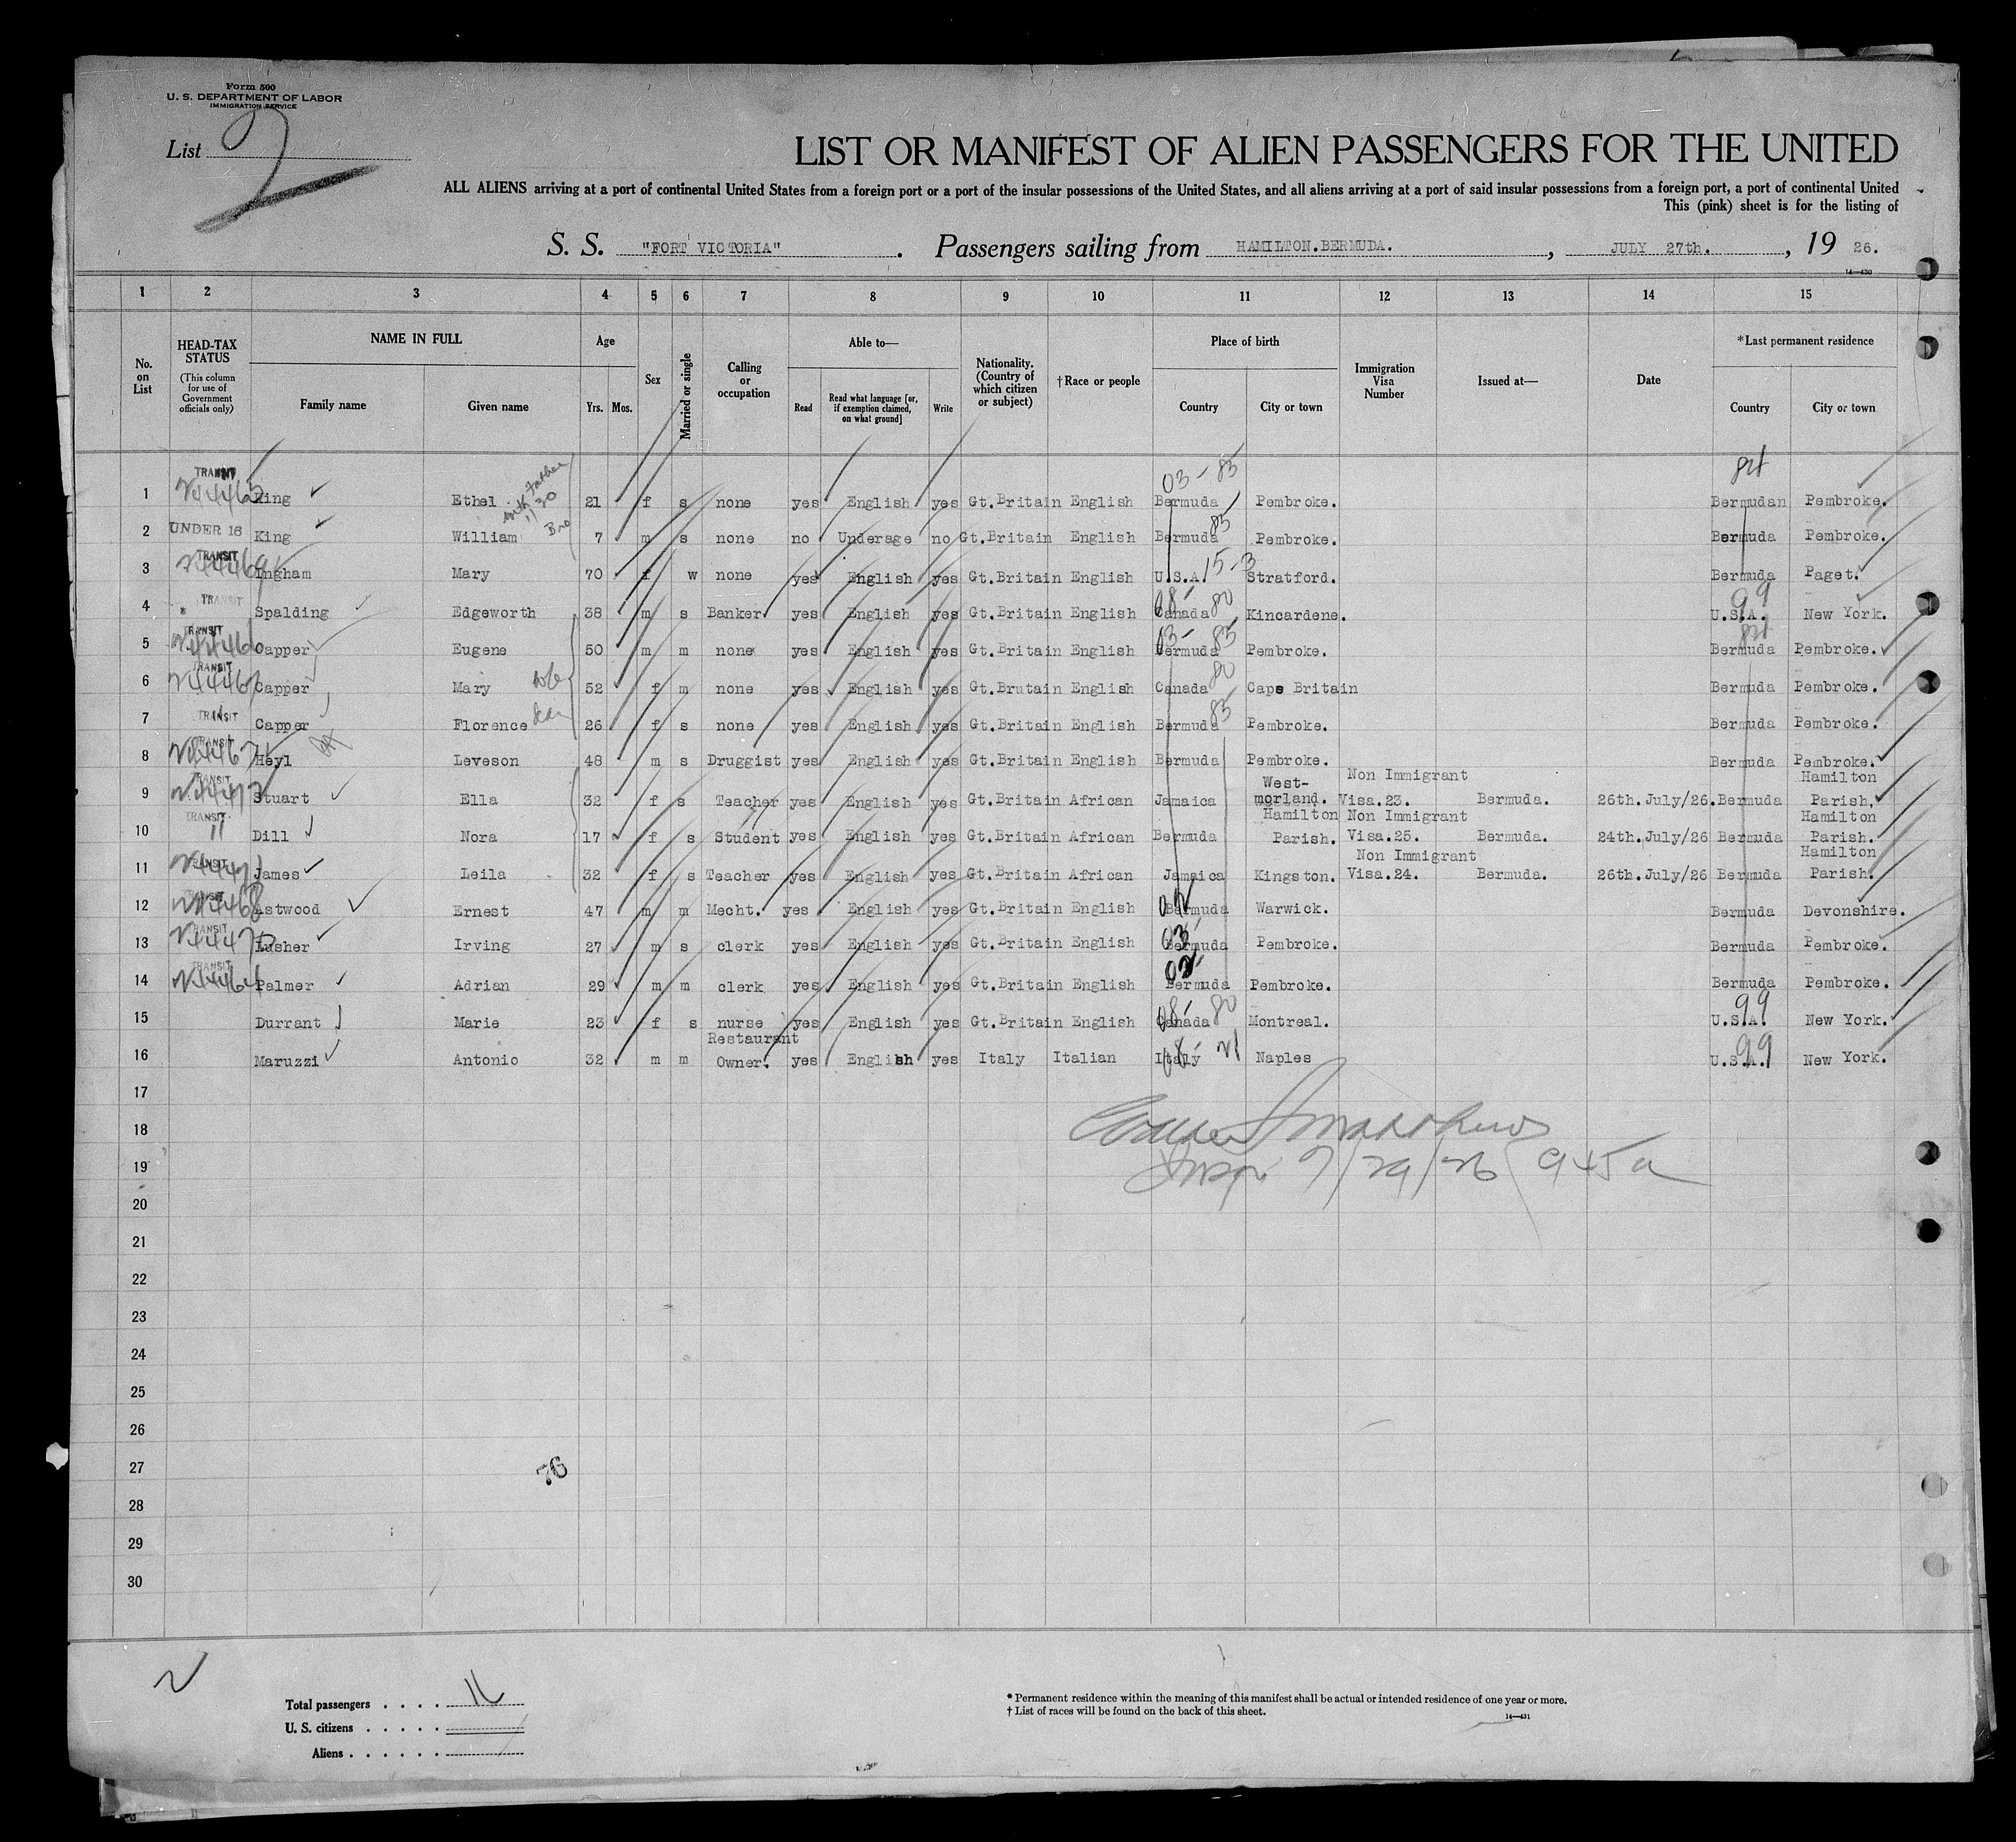 Form 500
U. S. DEPARTMENT OF LABOR
IMMIGRATION SERVICE
List 2
LIST OR MANIFEST OF ALIEN PASSENGERS FOR THE UNITED
ALL ALIENS arriving at a port of continental United States from a foreign port or a port of the insular possessions of the United States, and all aliens arriving at a port of said insular possessions from a foreign port, a port of continental United
This (pink) sheet is for the listing of
S. S. "FORT VICTORIA" . Passengers sailing from HAMILTON.BERMUDA. , JULY 27th. , 19 26.
14—430
1 2 3 4 5 6 7 8 9 10 11 12 13 14 15
No. on List
HEAD-TAX STATUS (This column for use of Government officials only)
NAME IN FULL Family name Given name
Age Yrs. Mos.
Sex
Married or single
Calling or occupation
Able to— Read Read what language [or, if exemption claimed, on what ground] Write
Nationality. (Country of which citizen or subject)
†Race or people
Place of birth Country City or town
Immigration Visa Number
Issued at—
Date
*Last permanent residence Country City or town
1 TRANSIT King Ethel with father 21 f s none yes English yes Gt.Britain English Bermuda 03-85 Pembroke. Bermudan Pembroke.
2 UNDER 16 King William Bro 7 m s none no Underage no Gt.Britain English Bermuda 85 Pembroke. Bermuda Pembroke.
3 TRANSIT Ingham Mary 70 f w none yes English yes Gt.Britain English U.S.A. 15-3 Stratford. Bermuda Paget.
4 TRANSIT Spalding Edgeworth 38 m s Banker yes English yes Gt.Britain English Canada 80 Kincardene. U.S.A. 99 New York.
5 TRANSIT Capper Eugene 50 m m none yes English yes Gt.Britain English Bermuda 85 Pembroke. Bermuda Pembroke.
6 TRANSIT Capper Mary wfe 52 f m none yes English yes Gt.Brutain English Canada 80 Cape Britain Bermuda Pembroke.
7 TRANSIT Capper Florence 26 f s none yes English yes Gt.Britain English Bermuda 85 Pembroke. Bermuda Pembroke.
8 TRANSIT Heyl Leveson 48 m s Druggist yes English yes Gt.Britain English Bermuda Pembroke. Bermuda Pembroke.
9 TRANSIT Stuart Ella 32 f s Teacher yes English yes Gt.Britain African Jamaica West-morland. Non Immigrant Visa.23. Bermuda. 26th.July/26. Bermuda Hamilton Parish,
10 TRANSIT Dill Nora 17 f s Student yes English yes Gt.Britain African Bermuda Hamilton Parish. Non Immigrant Visa.25. Bermuda. 24th.July/26 Bermuda Hamilton Parish.
11 TRANSIT James Leila 32 f s Teacher yes English yes Gt.Britain African Jamaica Kingston. Non Immigrant Visa.24. Bermuda. 26th.July/26 Bermuda Hamilton Parish.
12 TRANSIT Astwood Ernest 47 m m Mecht. yes English yes Gt.Britain English Bermuda Warwick. Bermuda Devonshire.
13 TRANSIT Lusher Irving 27 m s clerk yes English yes Gt.Britain English Bermuda 03 Pembroke. Bermuda Pembroke.
14 TRANSIT Palmer Adrian 29 m m clerk yes English yes Gt.Britain English Bermuda 02 Pembroke. Bermuda Pembroke.
15 Durrant Marie 23 f s nurse yes English yes Gt.Britain English Canada 80 Montreal. U.S.A. 99 New York.
16 Maruzzi Antonio 32 m m Restaurant Owner. yes English yes Italy Italian Italy 21 Naples U.S.A. 99 New York.
17
18
19 Insp 7/29/26 945a
20
21
22
23
24
25
26
27
76
28
29
30
Total passengers . . . .
U. S. citizens . . . . .
Aliens . . . . . .
* Permanent residence within the meaning of this manifest shall be actual or intended residence of one year or more.
† List of races will be found on the back of this sheet.
14—431